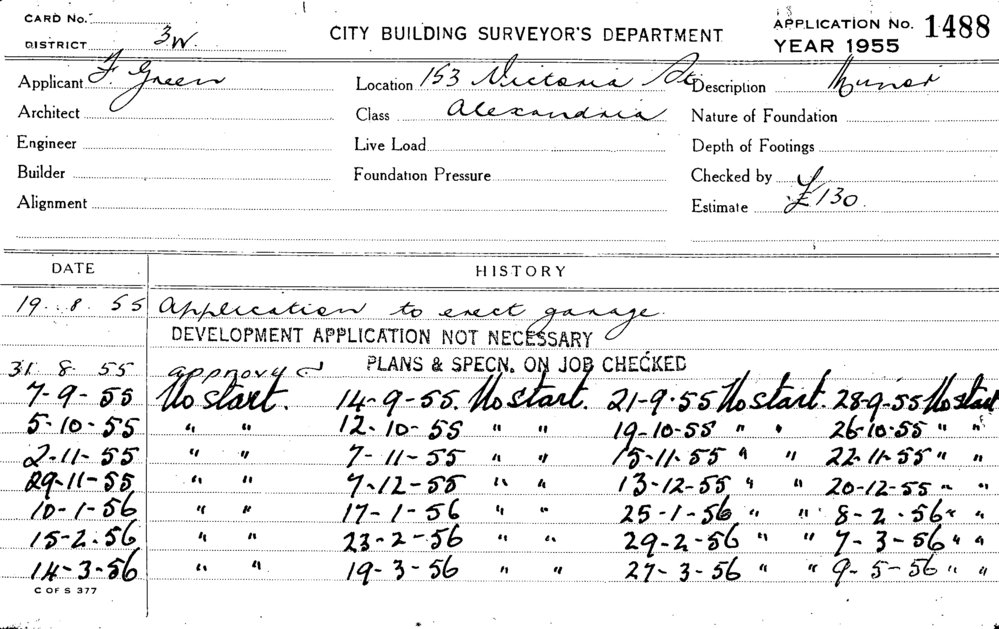 CARD No.
DISTRICT 3W.
CITY BUILDING SURVEYOR'S DEPARTMENT
APPLICATION No. 1488
YEAR 1955
Applicant F Green Location 153 Victoria St Description Minor
Architect Class Alexandria Nature of Foundation
Engineer Live Load Depth of Footings
Builder Foundation Pressure Checked by
Alignment Estimate £130.
DATE HISTORY
19. 8. 55 Application to erect garage.
DEVELOPMENT APPLICATION NOT NECESSARY
31 8 55 approved PLANS & SPECN. ON JOB CHECKED
7-9-55 No start. 14-9-55. No start. 21-9-55 No start. 28-9-55 No start
5-10-55 " " 12-10-55 " " 19-10-55 " " 26-10-55 " "
2-11-55 " " 7-11-55 " " 15-11-55 " " 22-11-55 " "
29-11-55 " " 7-12-55 " " 13-12-55 " " 20-12-55 " "
10-1-56 " " 17-1-56 " " 25-1-56 " " 8-2-56 " "
15-2-56 " " 23-2-56 " " 29-2-56 " " 7-3-56 " "
14-3-56 " " 19-3-56 " " 27-3-56 " " 9-5-56 " "
C OF S 377